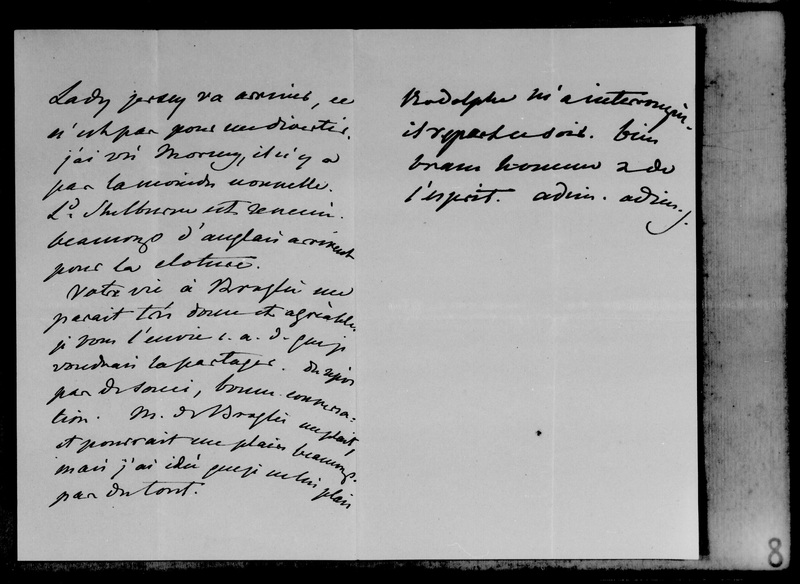 Lady Jersey va arriver, ce
n'est pas pour me divertir.
j'ai vu Morny, il n'y a
pas la moindre nouvelle.
Ld. Shelburne est revenu.
beaucoup d'anglais arrivent
pour la cloture.
Votre vie à Broglie me
parait très douce et agréable
je vous l'envie c. a. d. que je
voudrais la partager. du repos
pas de souci, bonne conversa-
tion. M. de Broglie me plait,
et pourrait me plaire beaucoup.
mais j'ai idée que je ne lui plais
pas du tout.
Rodolphe m'a interrompu.
il repart ce soir. bien
brave homme & de
l'esprit. adieu. adieu.
8